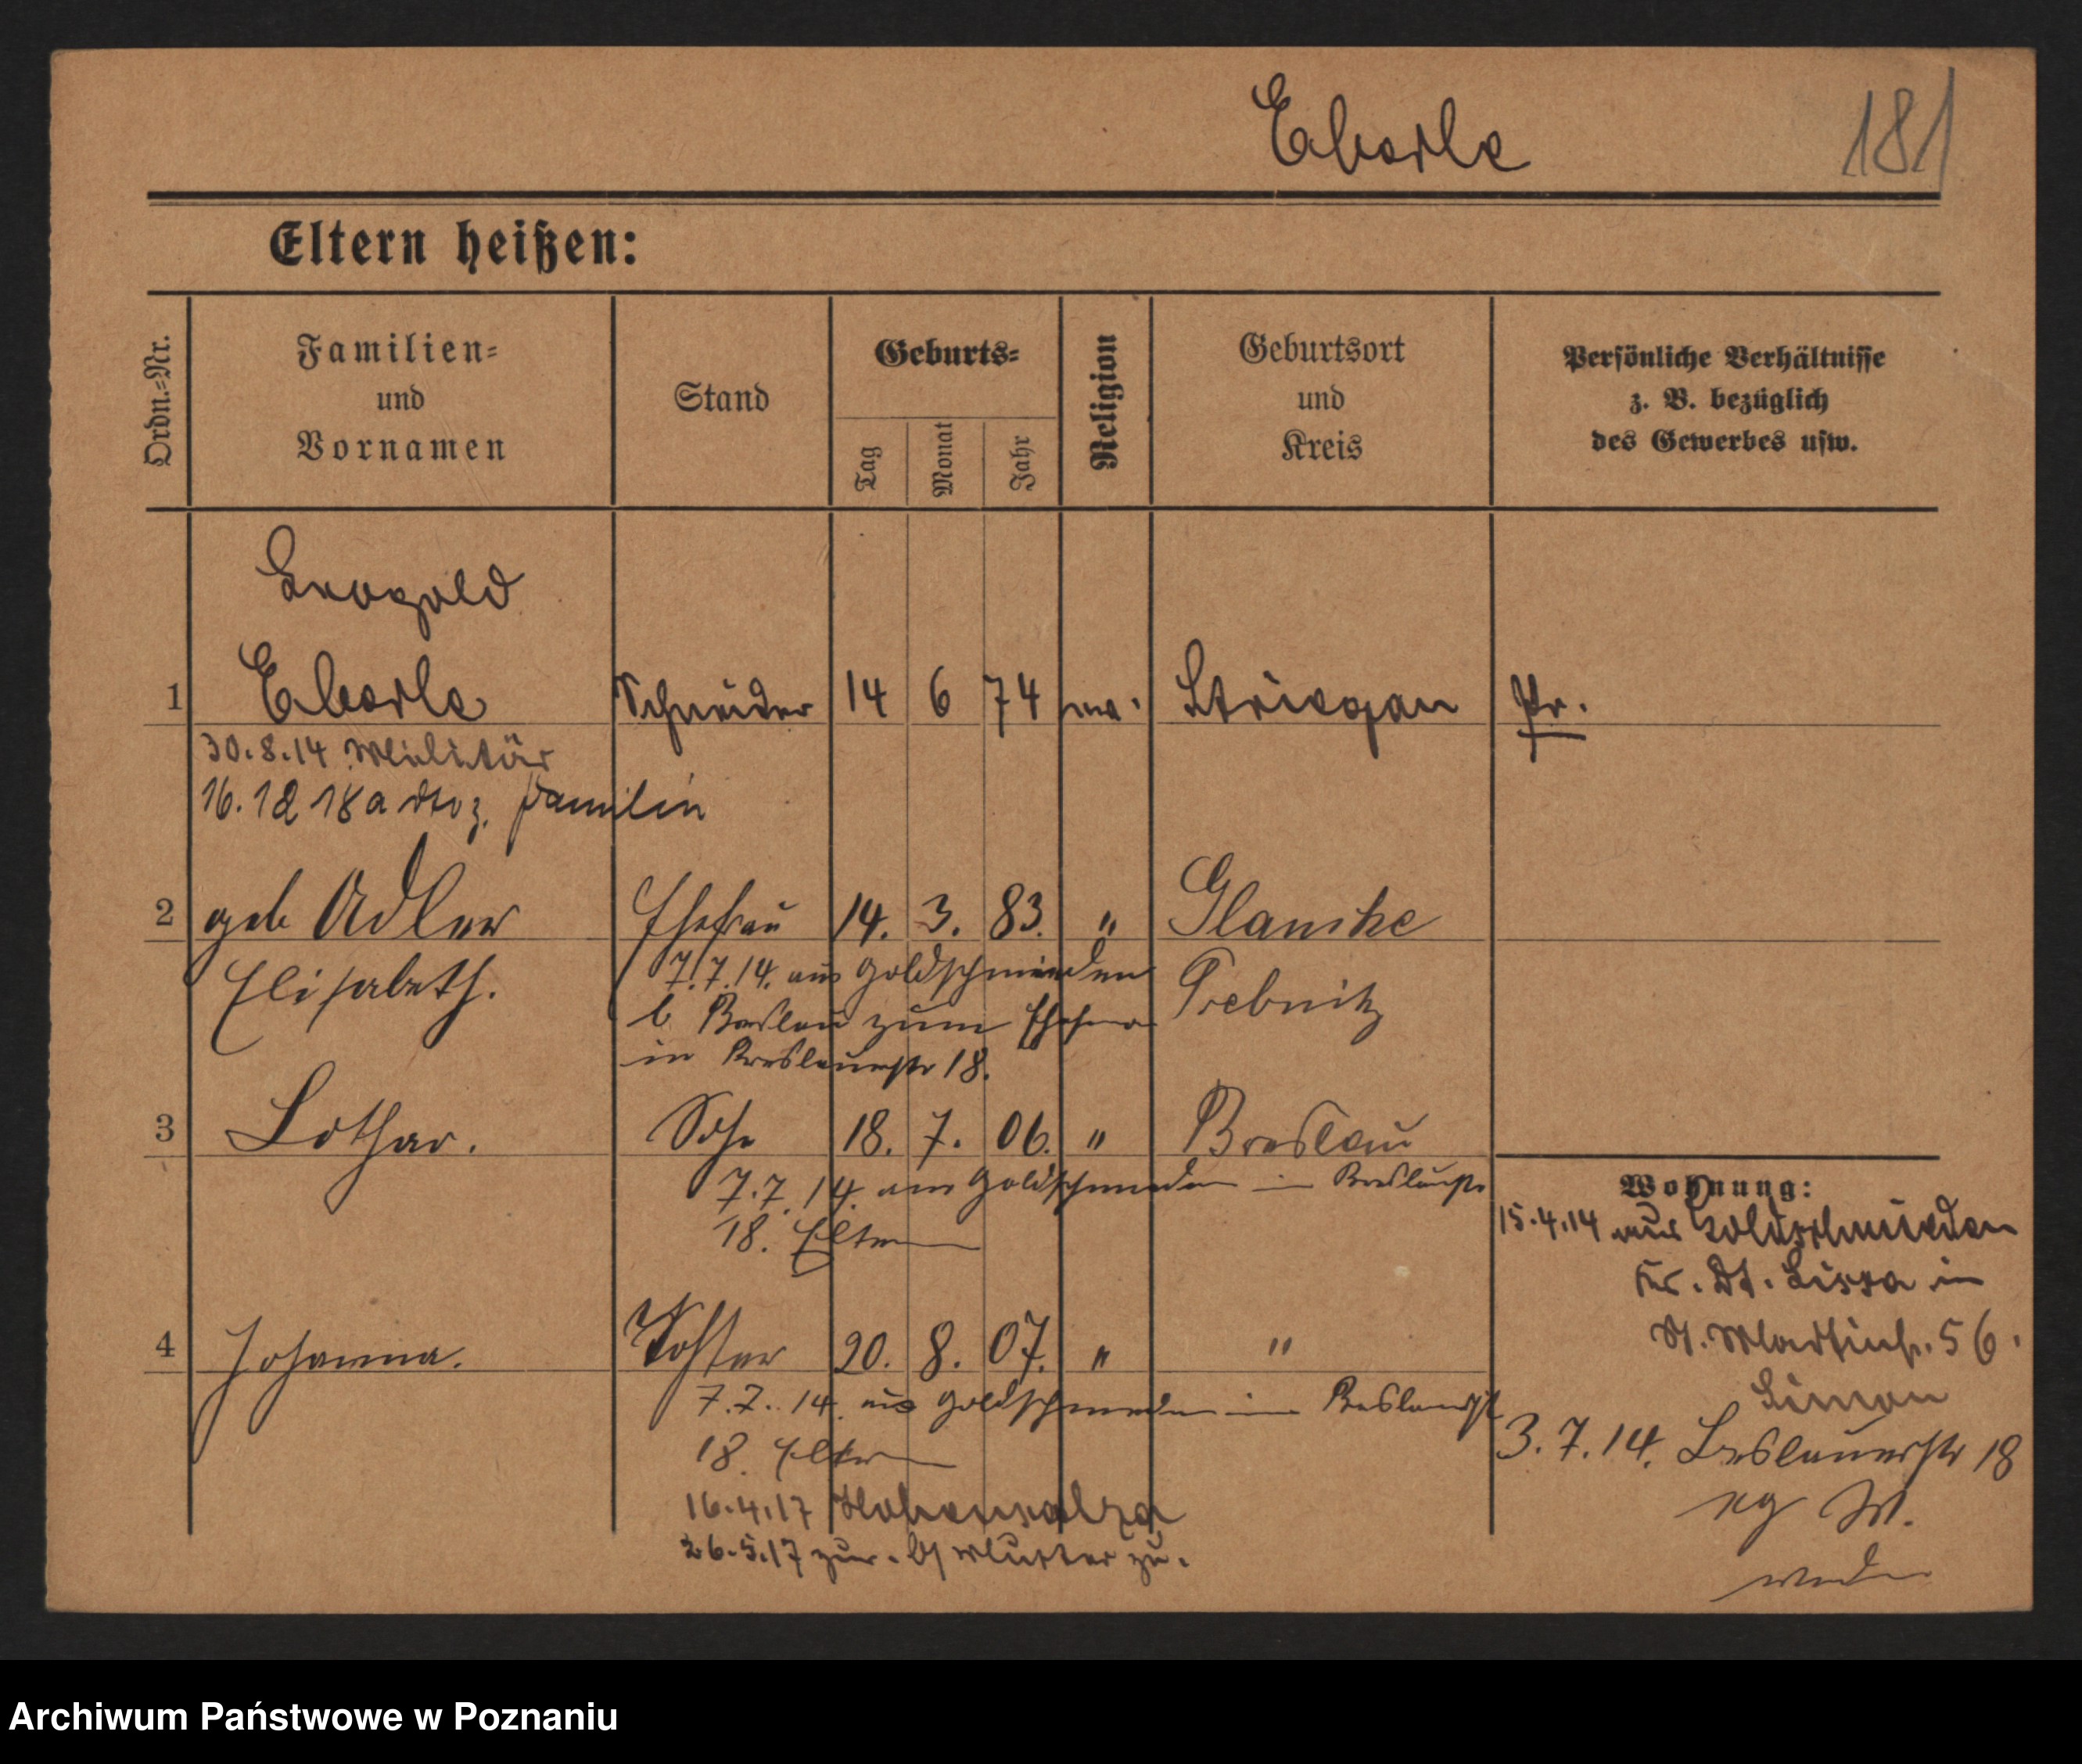 Eberle 181
Eltern heißen:
Ordn.-Nr. Familien- und Vornamen Stand Geburts- Tag Monat Jahr Religion Geburtsort und Kreis Persönliche Verhältnisse z. B. bezüglich des Gewerbes usw.
Leopold
1 Eberle Schneider 14 6 74 ev. Striegau Pr.
30.8.14 Militär
16.12 18 a dto z. Familie
2 geb Adler Ehefrau 14. 3. 83. " Glauche
Elisabeth. Trebnitz
7.7.14. aus Goldschmieden
b. Breslau zum Ehem
in Breslauerstr 18.
3 Lothar. Sohn 18. 7. 06. " Breslau
7.7.14. aus Goldschmieden in Breslauerstr
18. Eltern
4 Johanna. Tochter 20. 8. 07. " "
7.7.14. aus Goldschmieden in Breslauerstr
18. Eltern
16.4.17 Hohensalza
26.5.17 zur. Mutter zu.
Wohnung:
15.4.14 aus Goldschmieden
Kr. Dt. Lissa in
St. Martinstr. 56.
Simon
3.7.14. Breslauerstr 18